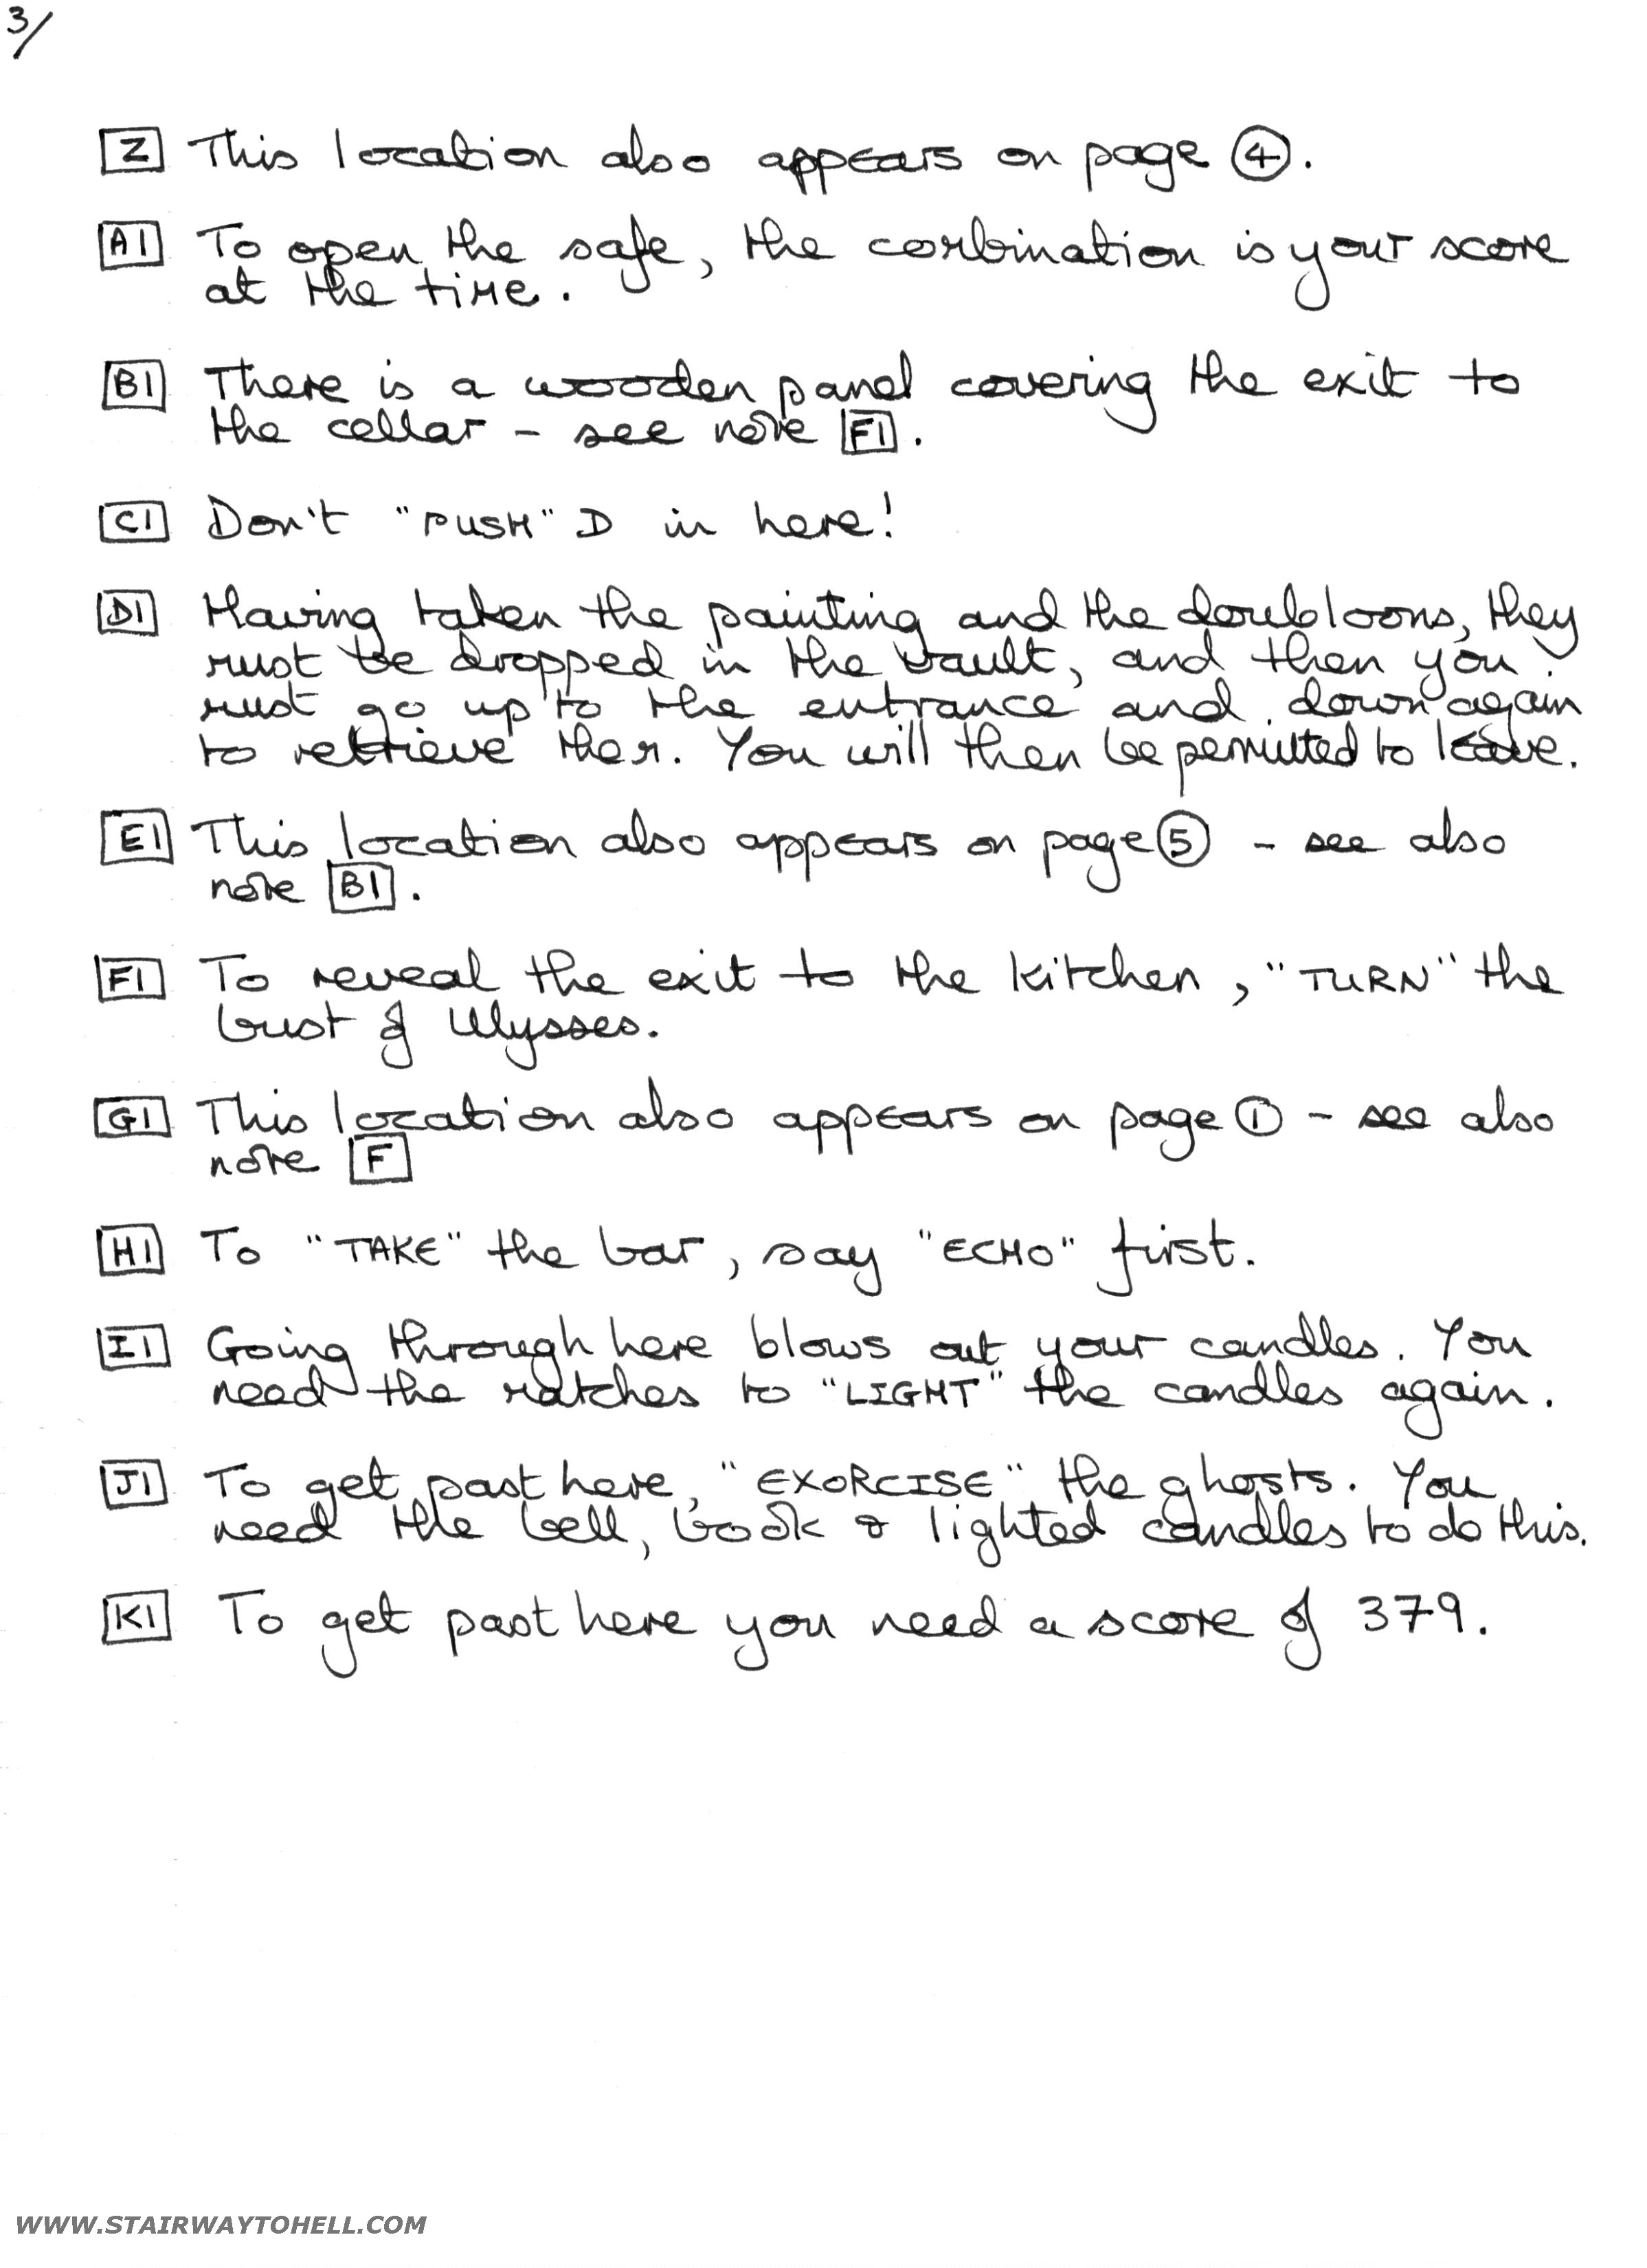 3/
Z This location also appears on page 4.
A1 To open the safe, the combination is your score
at the time.
B1 There is a wooden panel covering the exit to
the cellar - see note F1.
C1 Don't "PUSH" D in here!
D1 Having taken the painting and the doubloons, they
must be dropped in the vault, and then you
must go up to the entrance and down again
to retrieve them. You will then be permitted to leave.
E1 This location also appears on page 5 - see also
note B1.
F1 To reveal the exit to the kitchen, "TURN" the
bust of Ulysses.
G1 This location also appears on page 1 - see also
note F
H1 To "TAKE" the bar, say "ECHO" first.
I1 Going through here blows out your candles. You
need the matches to "LIGHT" the candles again.
J1 To get past here, "EXORCISE" the ghosts. You
need the bell, book & lighted candles to do this.
K1 To get past here you need a score of 379.
WWW.STAIRWAYTOHELL.COM